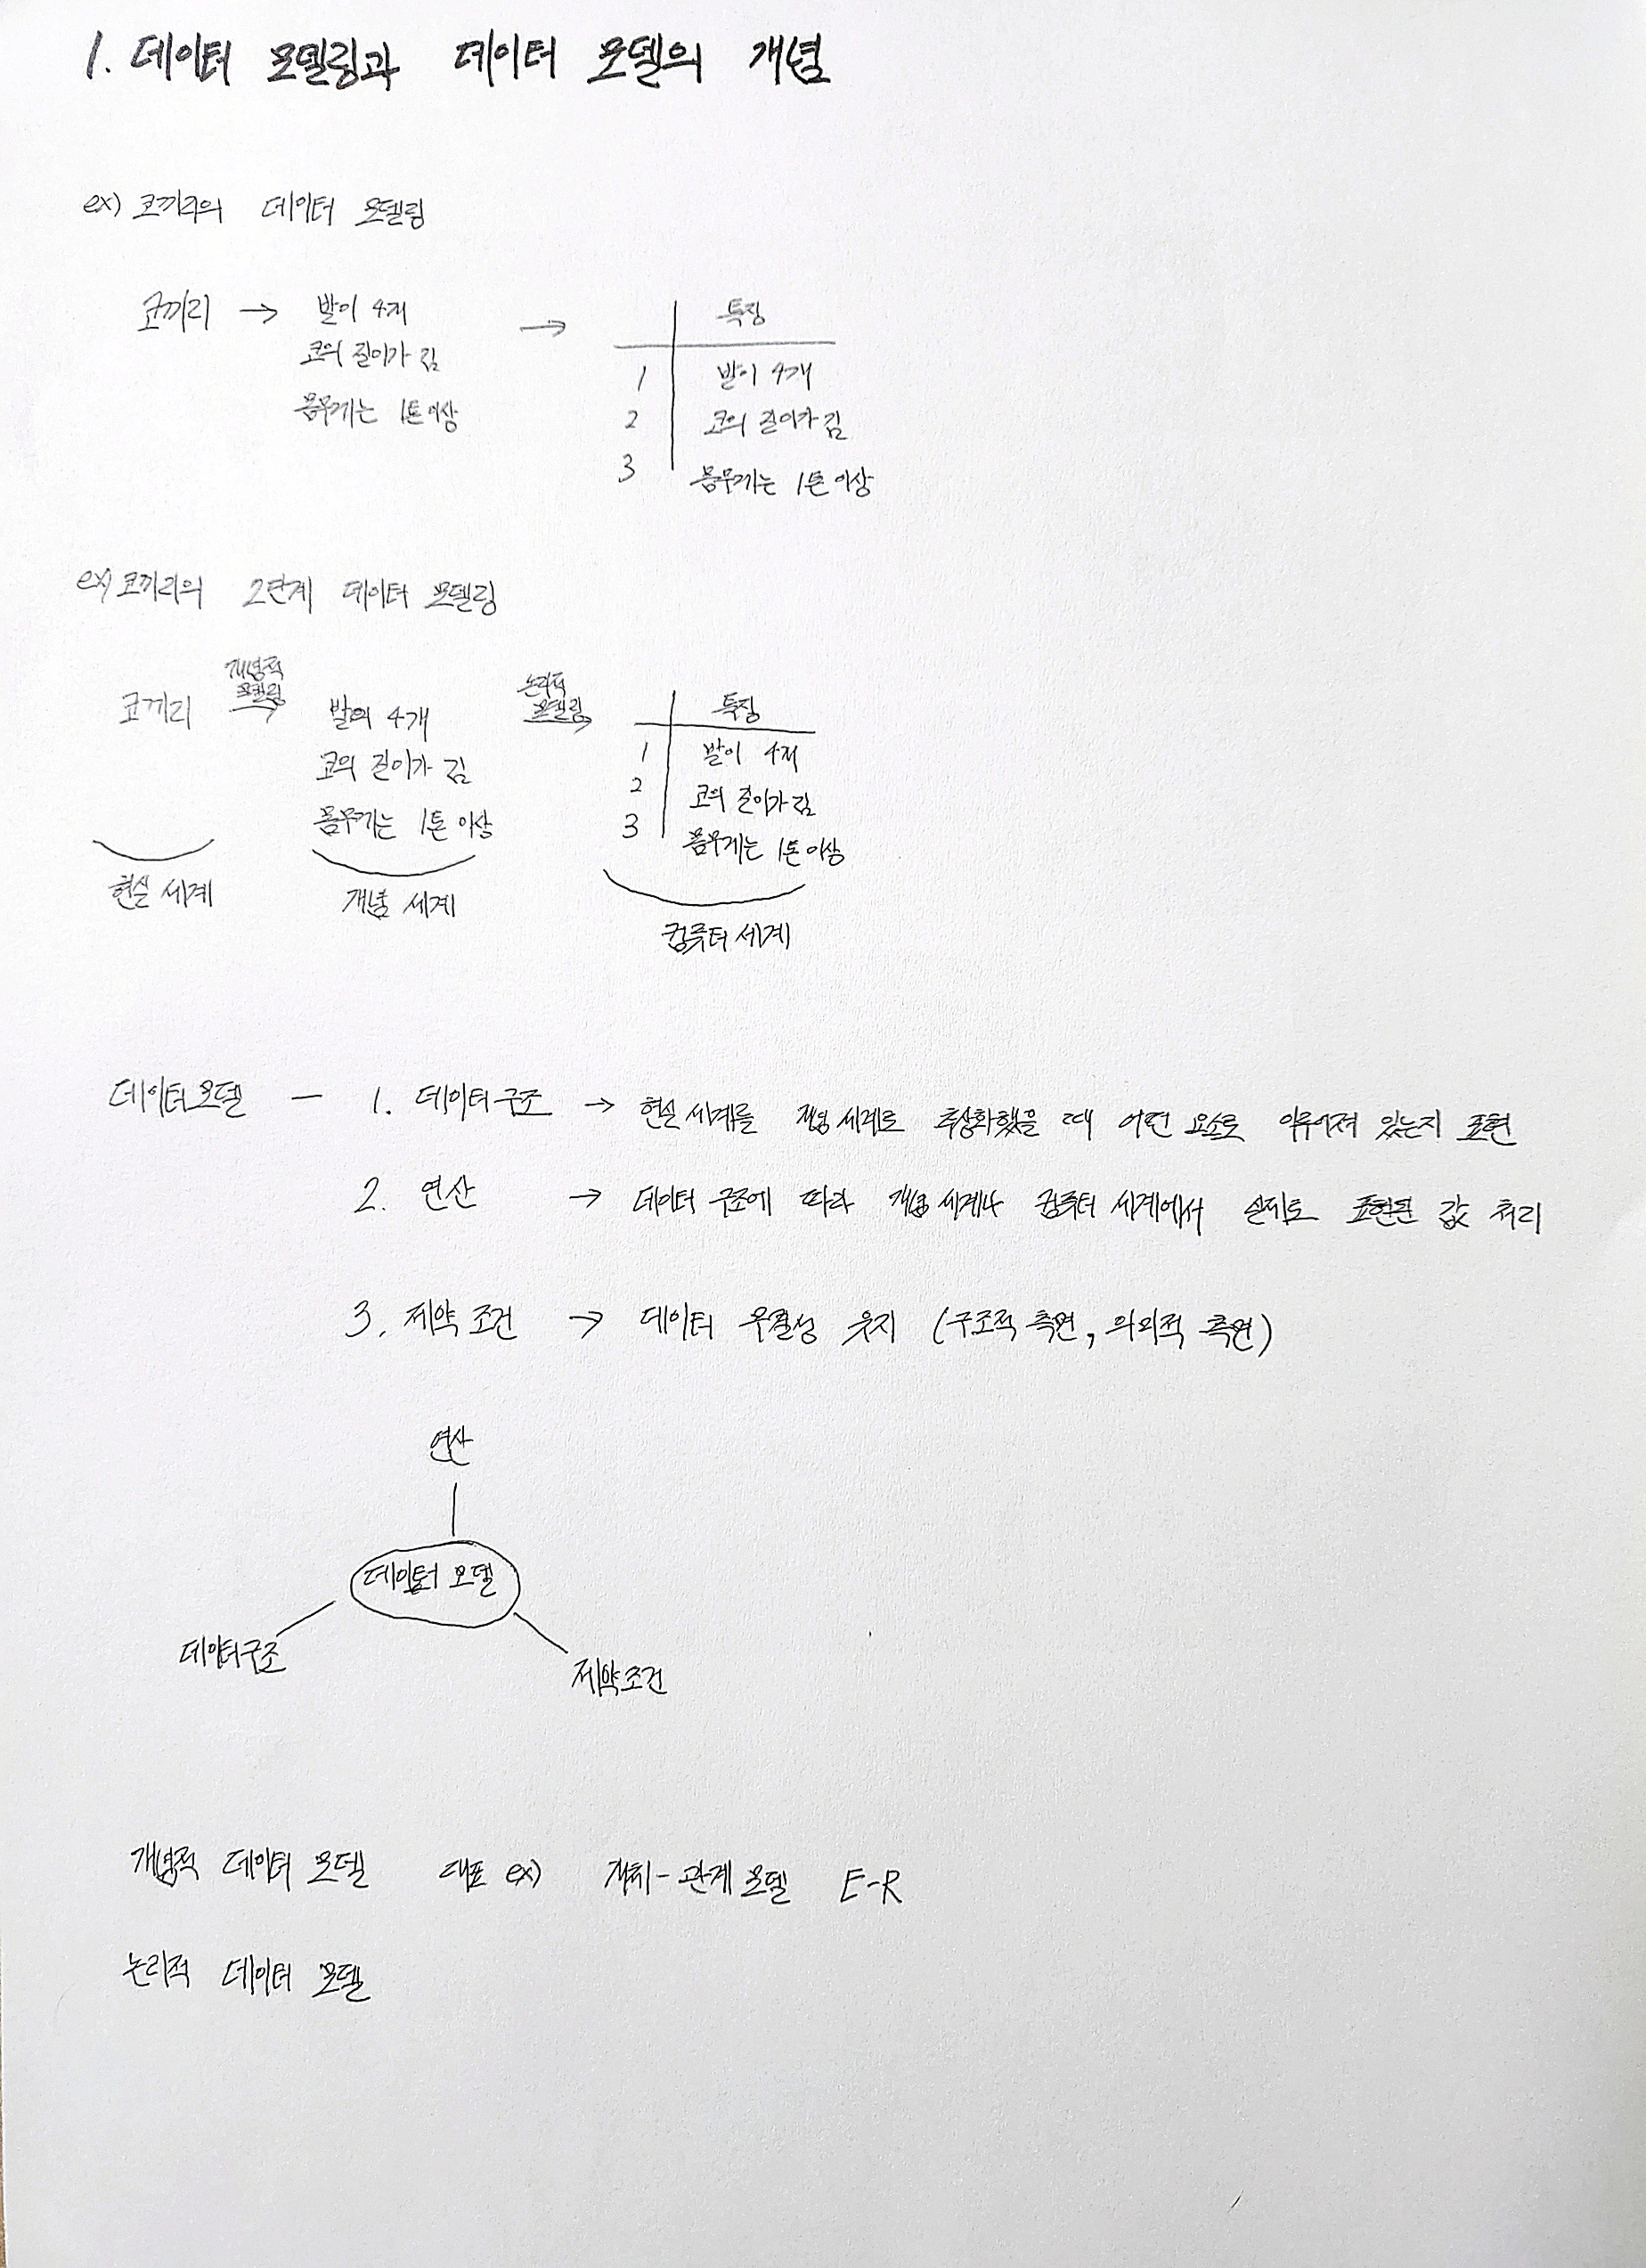 1. 데이터 모델링과 데이터 모델의 개념
ex) 코끼리의 데이터 모델링
코끼리 → 발이 4개 → 특징
코의 길이가 김
몸무게는 1톤 이상
1 발이 4개
2 코의 길이가 김
3 몸무게는 1톤 이상
ex) 코끼리의 2단계 데이터 모델링
개념적 모델링
논리적 모델링
코끼리 → 발의 4개 → 특징
코의 길이가 김
몸무게는 1톤 이상
1 발이 4개
2 코의 길이가 김
3 몸무게는 1톤 이상
현실 세계
개념 세계
컴퓨터 세계
데이터 모델 - 1. 데이터 구조 → 현실 세계를 개념 세계로 추상화했을 때 어떤 요소로 이루어져 있는지 표현
2. 연산 → 데이터 구조에 따라 개념 세계나 컴퓨터 세계에서 실제로 표현된 값 처리
3. 제약 조건 → 데이터 무결성 유지 (구조적 측면, 의미적 측면)
연산
데이터 모델
데이터 구조
제약조건
개념적 데이터 모델 대표 ex) 개체-관계 모델 E-R
논리적 데이터 모델